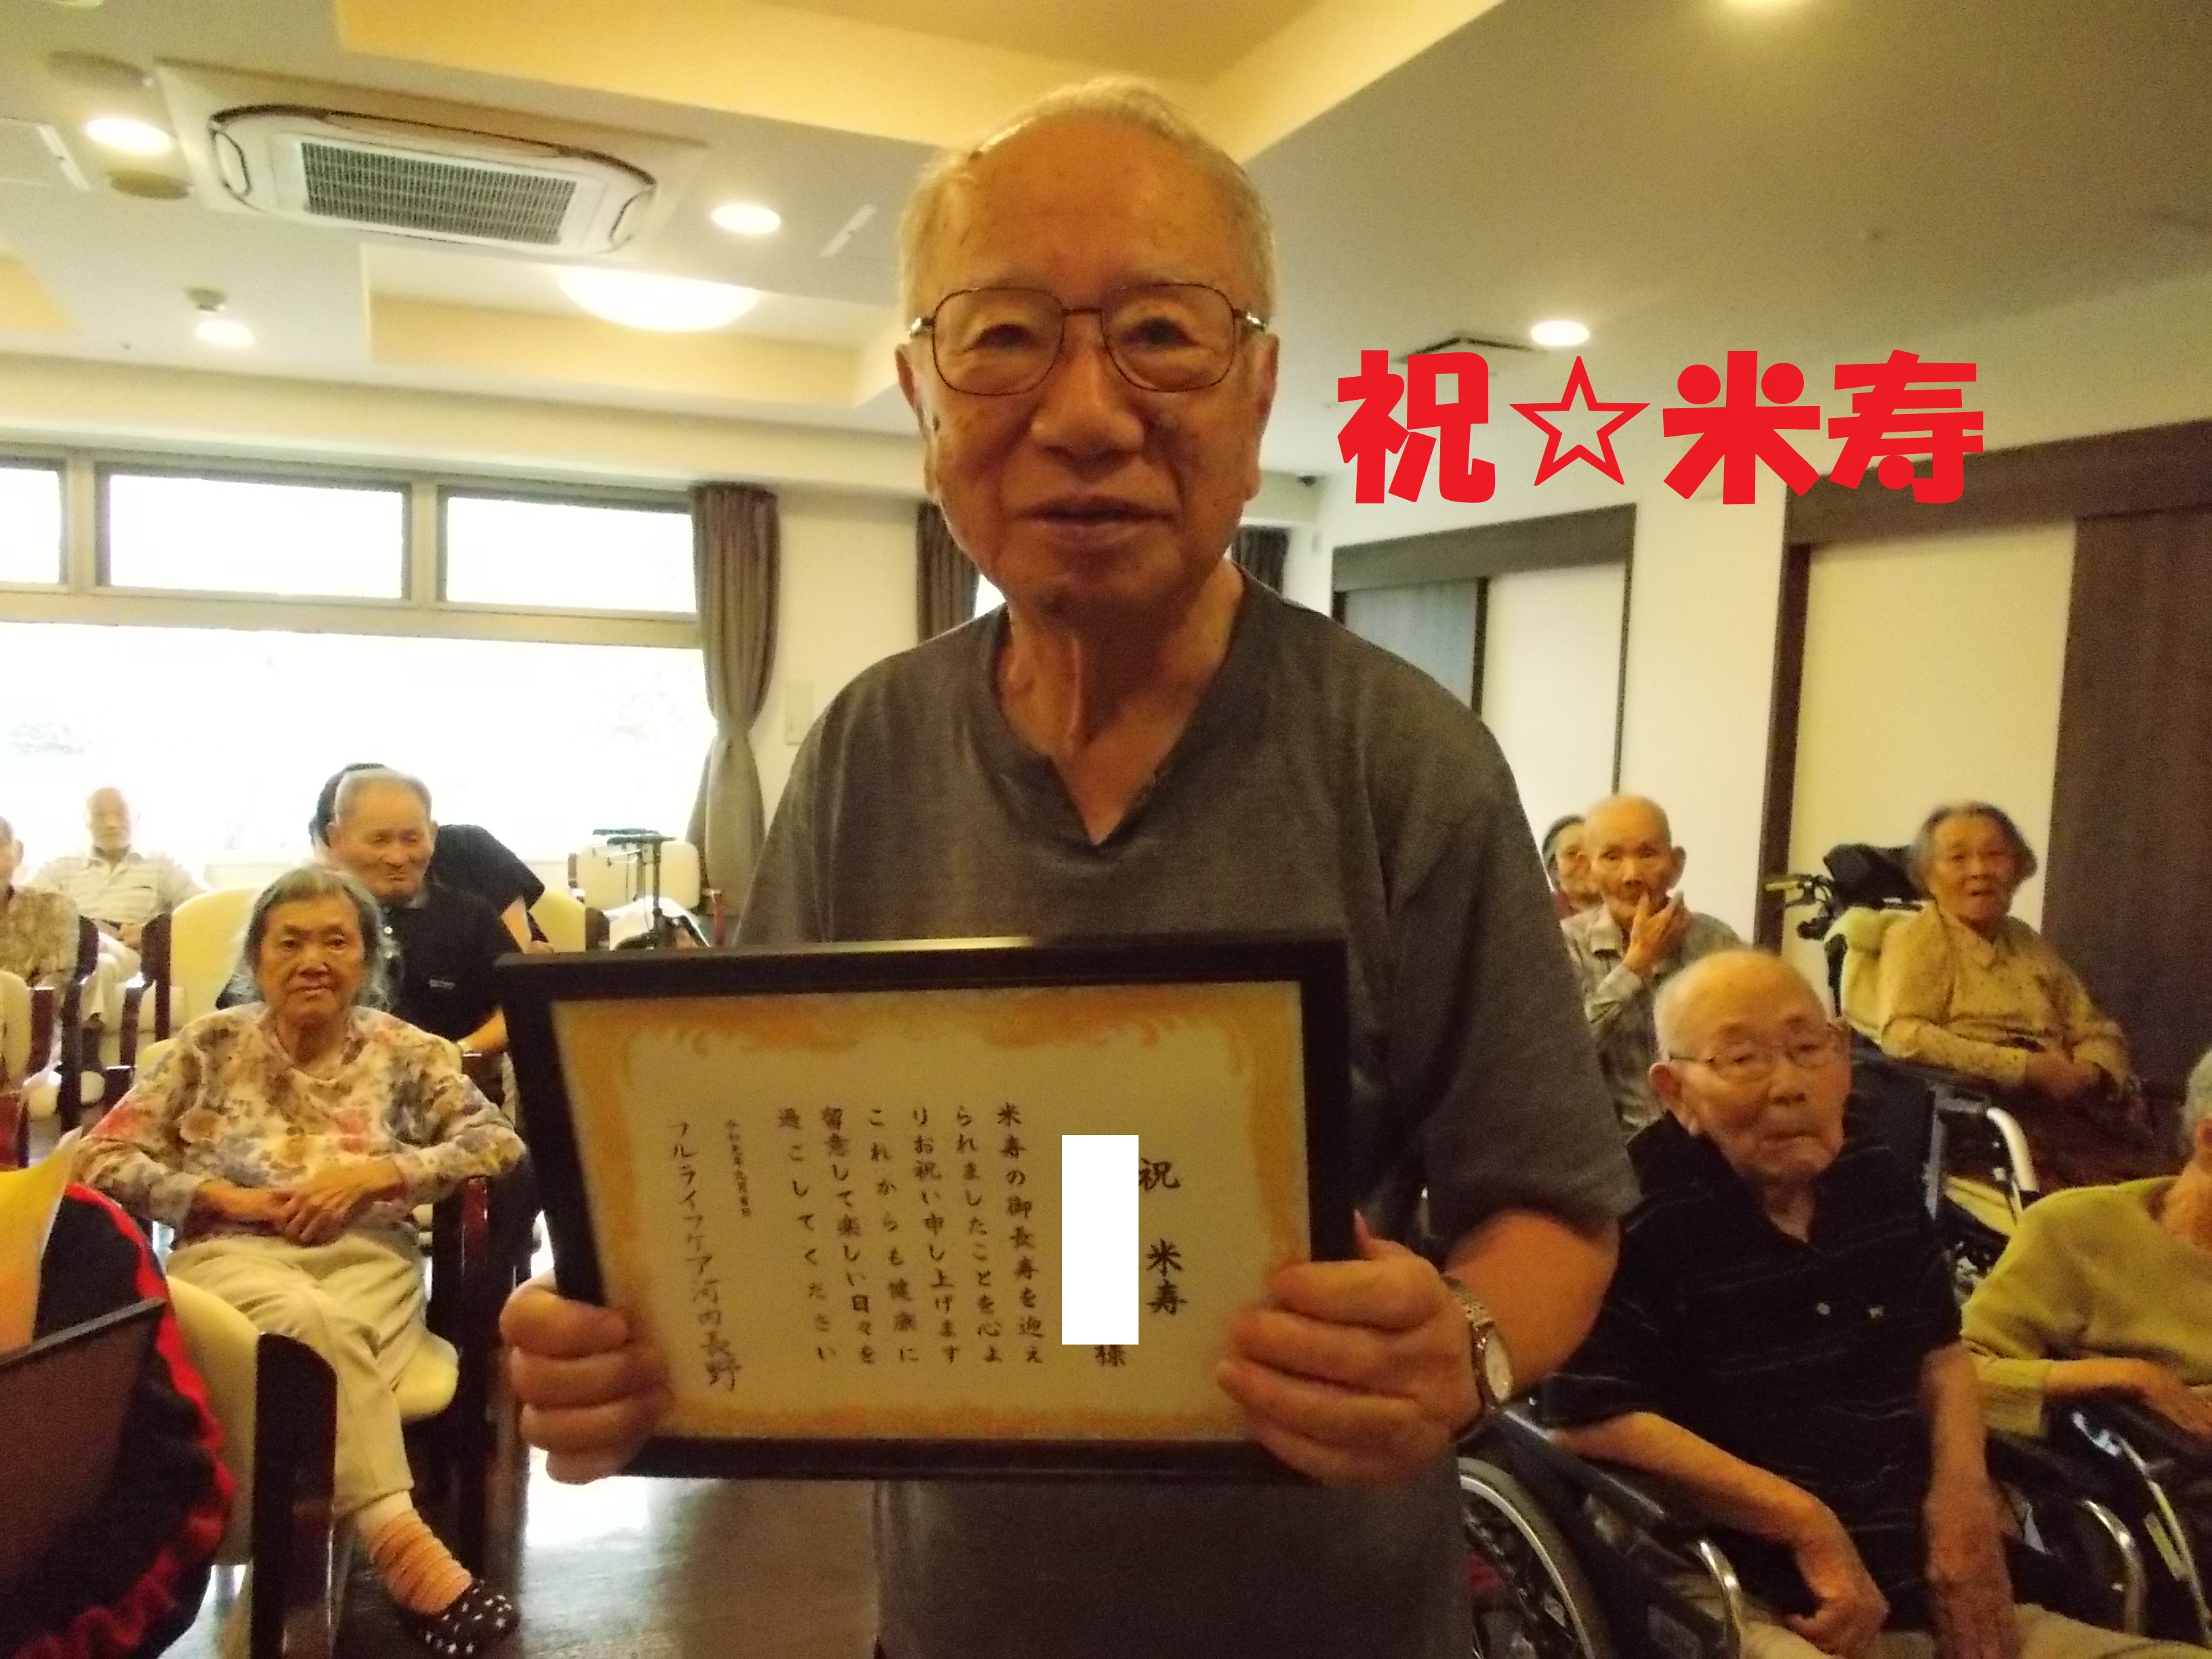 祝☆米寿
祝 米寿
様
米寿の御長寿を迎え
られましたことを心よ
りお祝い申し上げます
これからも健康に
留意して楽しい日々を
過ごしてください
フルライフケア河内長野